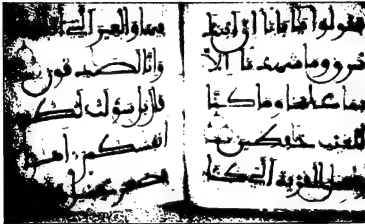 فقولوا يابانا ان ابنك
سرق وما شهدنا الا
بما علمنا وما كنا
للغيب حفظين
وسل القرية التي كنا
فيها والعير التي
وانا لصدقون
قال بل سولت لكم
انفسكم امر
فصبر جميل